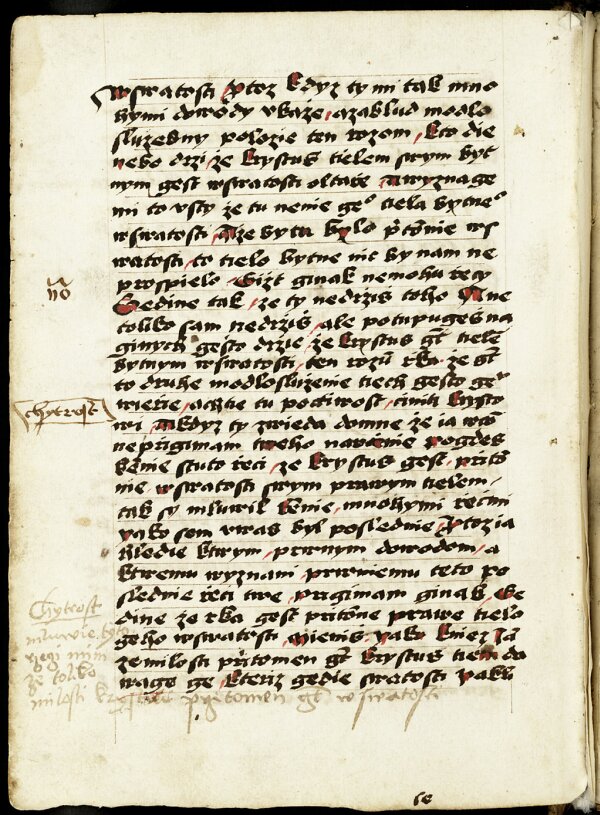 wswatosti / Protoz kdyz ty mi tak mno
hymi dowody vkaże / a za blud modlo
slużebny polozie ten rozom / kto die
nebo drzi / że krystus tielem swym byt
nym gest wswatosti oltarze / A wyznage
mi to vsty że tu nenie geº tiela bytneº
wswatosti / A że by tu bylo przitomnie ws
watosti / to tielo bytne nic by nam ne
prospielo / Giżt ginak nemohu recy
Gedine tak / że ty nedrziss toho / A ne
toliko sam nedrziss / ale potupugess na
giných gesto drzie / że krystus gt tielem
bytnym wswatosti / ten rozum rka / że gt
to druhe modlosluzenie tiech gesto geº
wierie / a chtie tu poctiwost / ciniti krysto
wi / A kdyz ty zwieda domne że ia
neprzigimam tweho
stuto reci / że krystus gest / prito
nie wswatosti swym prawym tielem /
tak sy mluwil / mnohymi recmi
yako sem vwas byl poslednie / Protoz ia
hledie kterym / prwnym dowodom / a
kteremu wyznani / prwniemu teto po
slednie reci twe / przigimam ginak / Ge
dine że rka gest pritomne prawe tielo
geho wswatosti / Mienis / yako kniez
ze milosti pritomen gt krystus tiem da
rage ge / kteriz gedie swatosti yakzi
no
chytrost
Chytrost
mluwie
że toliko
milosti krystus przitomen gt w swatosti
se